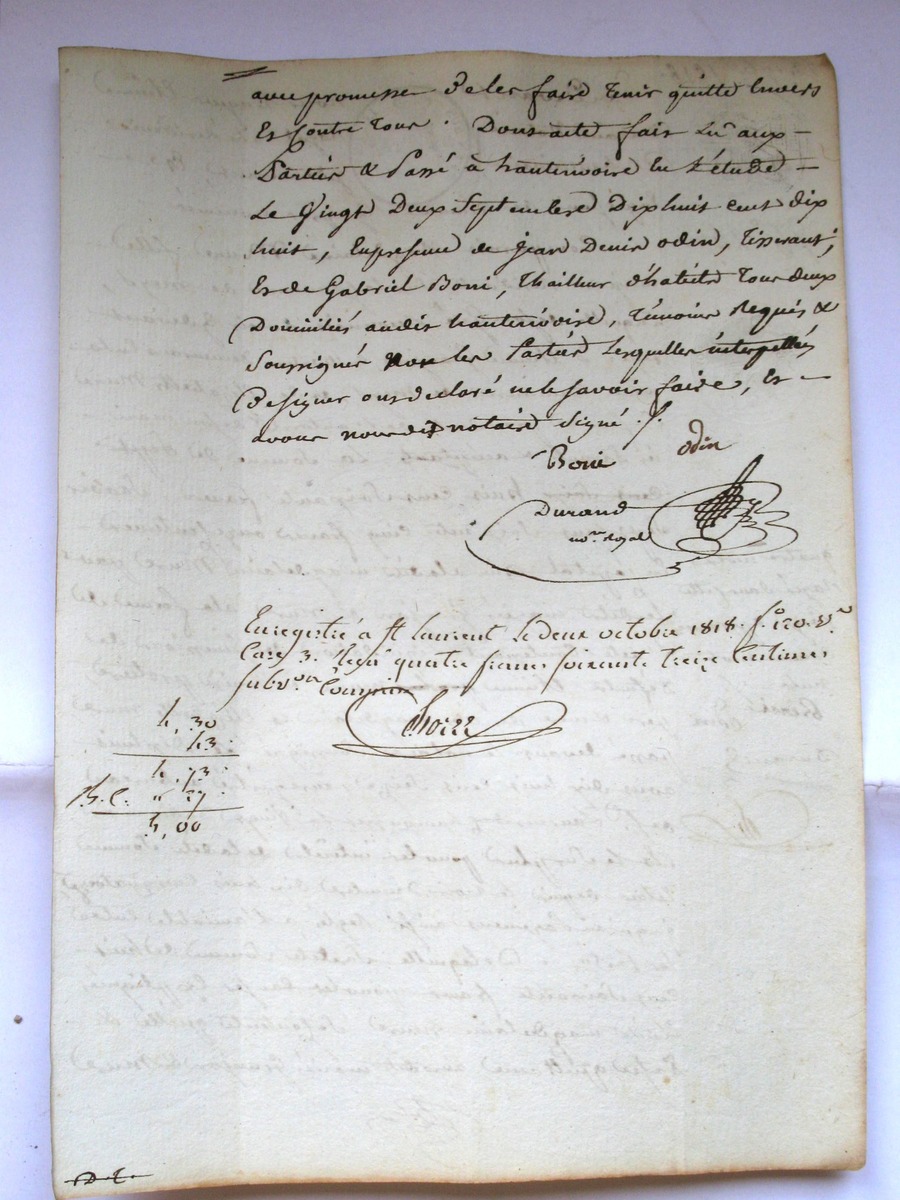 avec promesse de les faire tenir quitte Envers
Et Contre Tous . Dont acte fait Lu aux
Parties & Passé à hauterivoire En L'étude
Le Vingt Deux Septembre Dix huit cent dix
huit, En presence de Jean Denis odin, Tisserant,
Et de Gabriel Boni, Thailleur d'habits Tous deux
Domiciliés audit hauterivoire, Témoins Requis &
Soussignés non les Parties Lesquelles interpellées
De signer ont declaré ne le savoir faire, Et
avons nous dit notaire Signé ./.
Boni odin
Durand
no.re Royal
Enregistré a St laurent Le deux octobre 1818. f.o 170. v.o
Case 3. Reçu quatre francs soixante treize Centimes
Subv.on Comprise
4,30
43
4,73
" 27
5,00